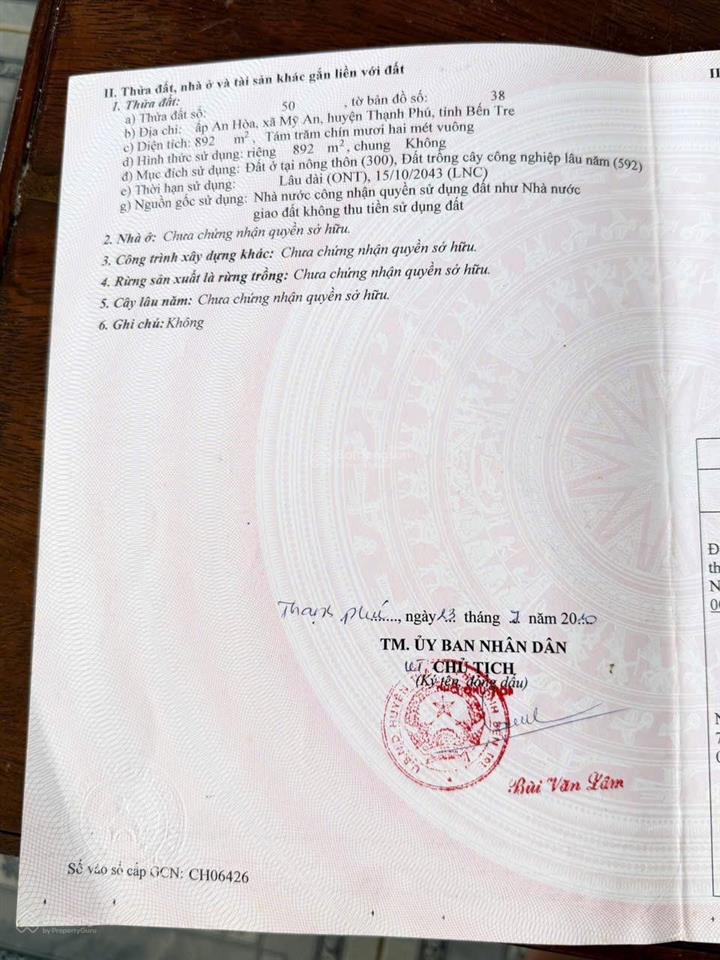 II. Thửa đất, nhà ở và tài sản khác gắn liền với đất
1. Thửa đất:
a) Thửa đất số: 50 , tờ bản đồ số: 38
b) Địa chỉ: ấp An Hòa, xã Mỹ An, huyện Thạnh Phú, tỉnh Bến Tre
c) Diện tích: 892 m², Tám trăm chín mươi hai mét vuông
d) Hình thức sử dụng: riêng 892 m², chung Không
đ) Mục đích sử dụng: Đất ở tại nông thôn (300), Đất trồng cây công nghiệp lâu năm (592)
e) Thời hạn sử dụng: Lâu dài (ONT), 15/10/2043 (LNC)
g) Nguồn gốc sử dụng: Nhà nước công nhận quyền sử dụng đất như Nhà nước
giao đất không thu tiền sử dụng đất
2. Nhà ở: Chưa chứng nhận quyền sở hữu.
3. Công trình xây dựng khác: Chưa chứng nhận quyền sở hữu.
4. Rừng sản xuất là rừng trồng: Chưa chứng nhận quyền sở hữu.
5. Cây lâu năm: Chưa chứng nhận quyền sở hữu.
6. Ghi chú: Không
Thạnh Phú, ngày tháng năm
TM. ỦY BAN NHÂN DÂN
KT. CHỦ TỊCH
(Ký tên, đóng dấu)
Bùi Văn Lâm
Số vào sổ cấp GCN: CH06426
by PropertyGuru